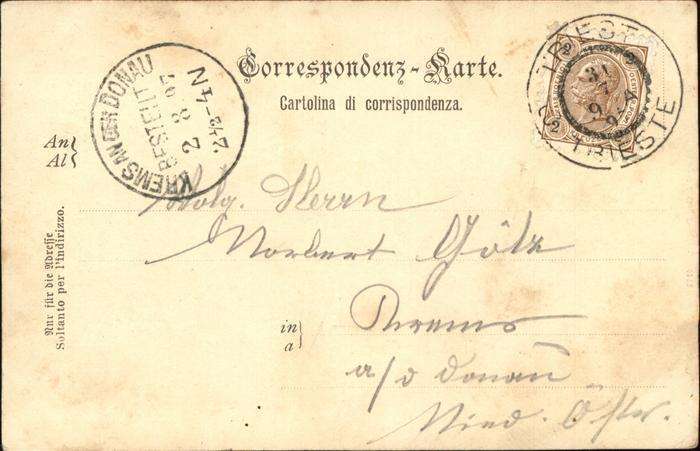 Correspondenz-Karte.
Cartolina di corrispondenza.
An
Al
Nur für die Adresse
Soltanto per l'indirizzo.
KREMS AN DER DONAU
BESTELLT
2 8
TRIESTE
TRIESTE
31
7
2
2
Wolg. Herrn
Norbert Götz
in
a
Krems
a/d Donau
Nied. Öster.